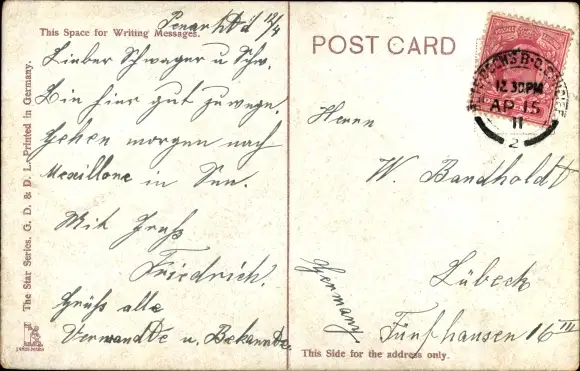 Penarth d 12/4
This Space for Writing Messages.
Lieber Schwager u Schw.
Bin hier gut zu wege.
Gehen morgen nach
Mexillone in See.
Mit Gruß
Friedrich.
Grüß alle
Verwandte u. Bekannte.
The Star Series. G. D. & D. L. Printed in Germany.
POST CARD
12.30PM
AP 15
11
2
Herrn
W. Bandholdt
Lübeck
Fünfhausen 16 III
Germany
This Side for the address only.